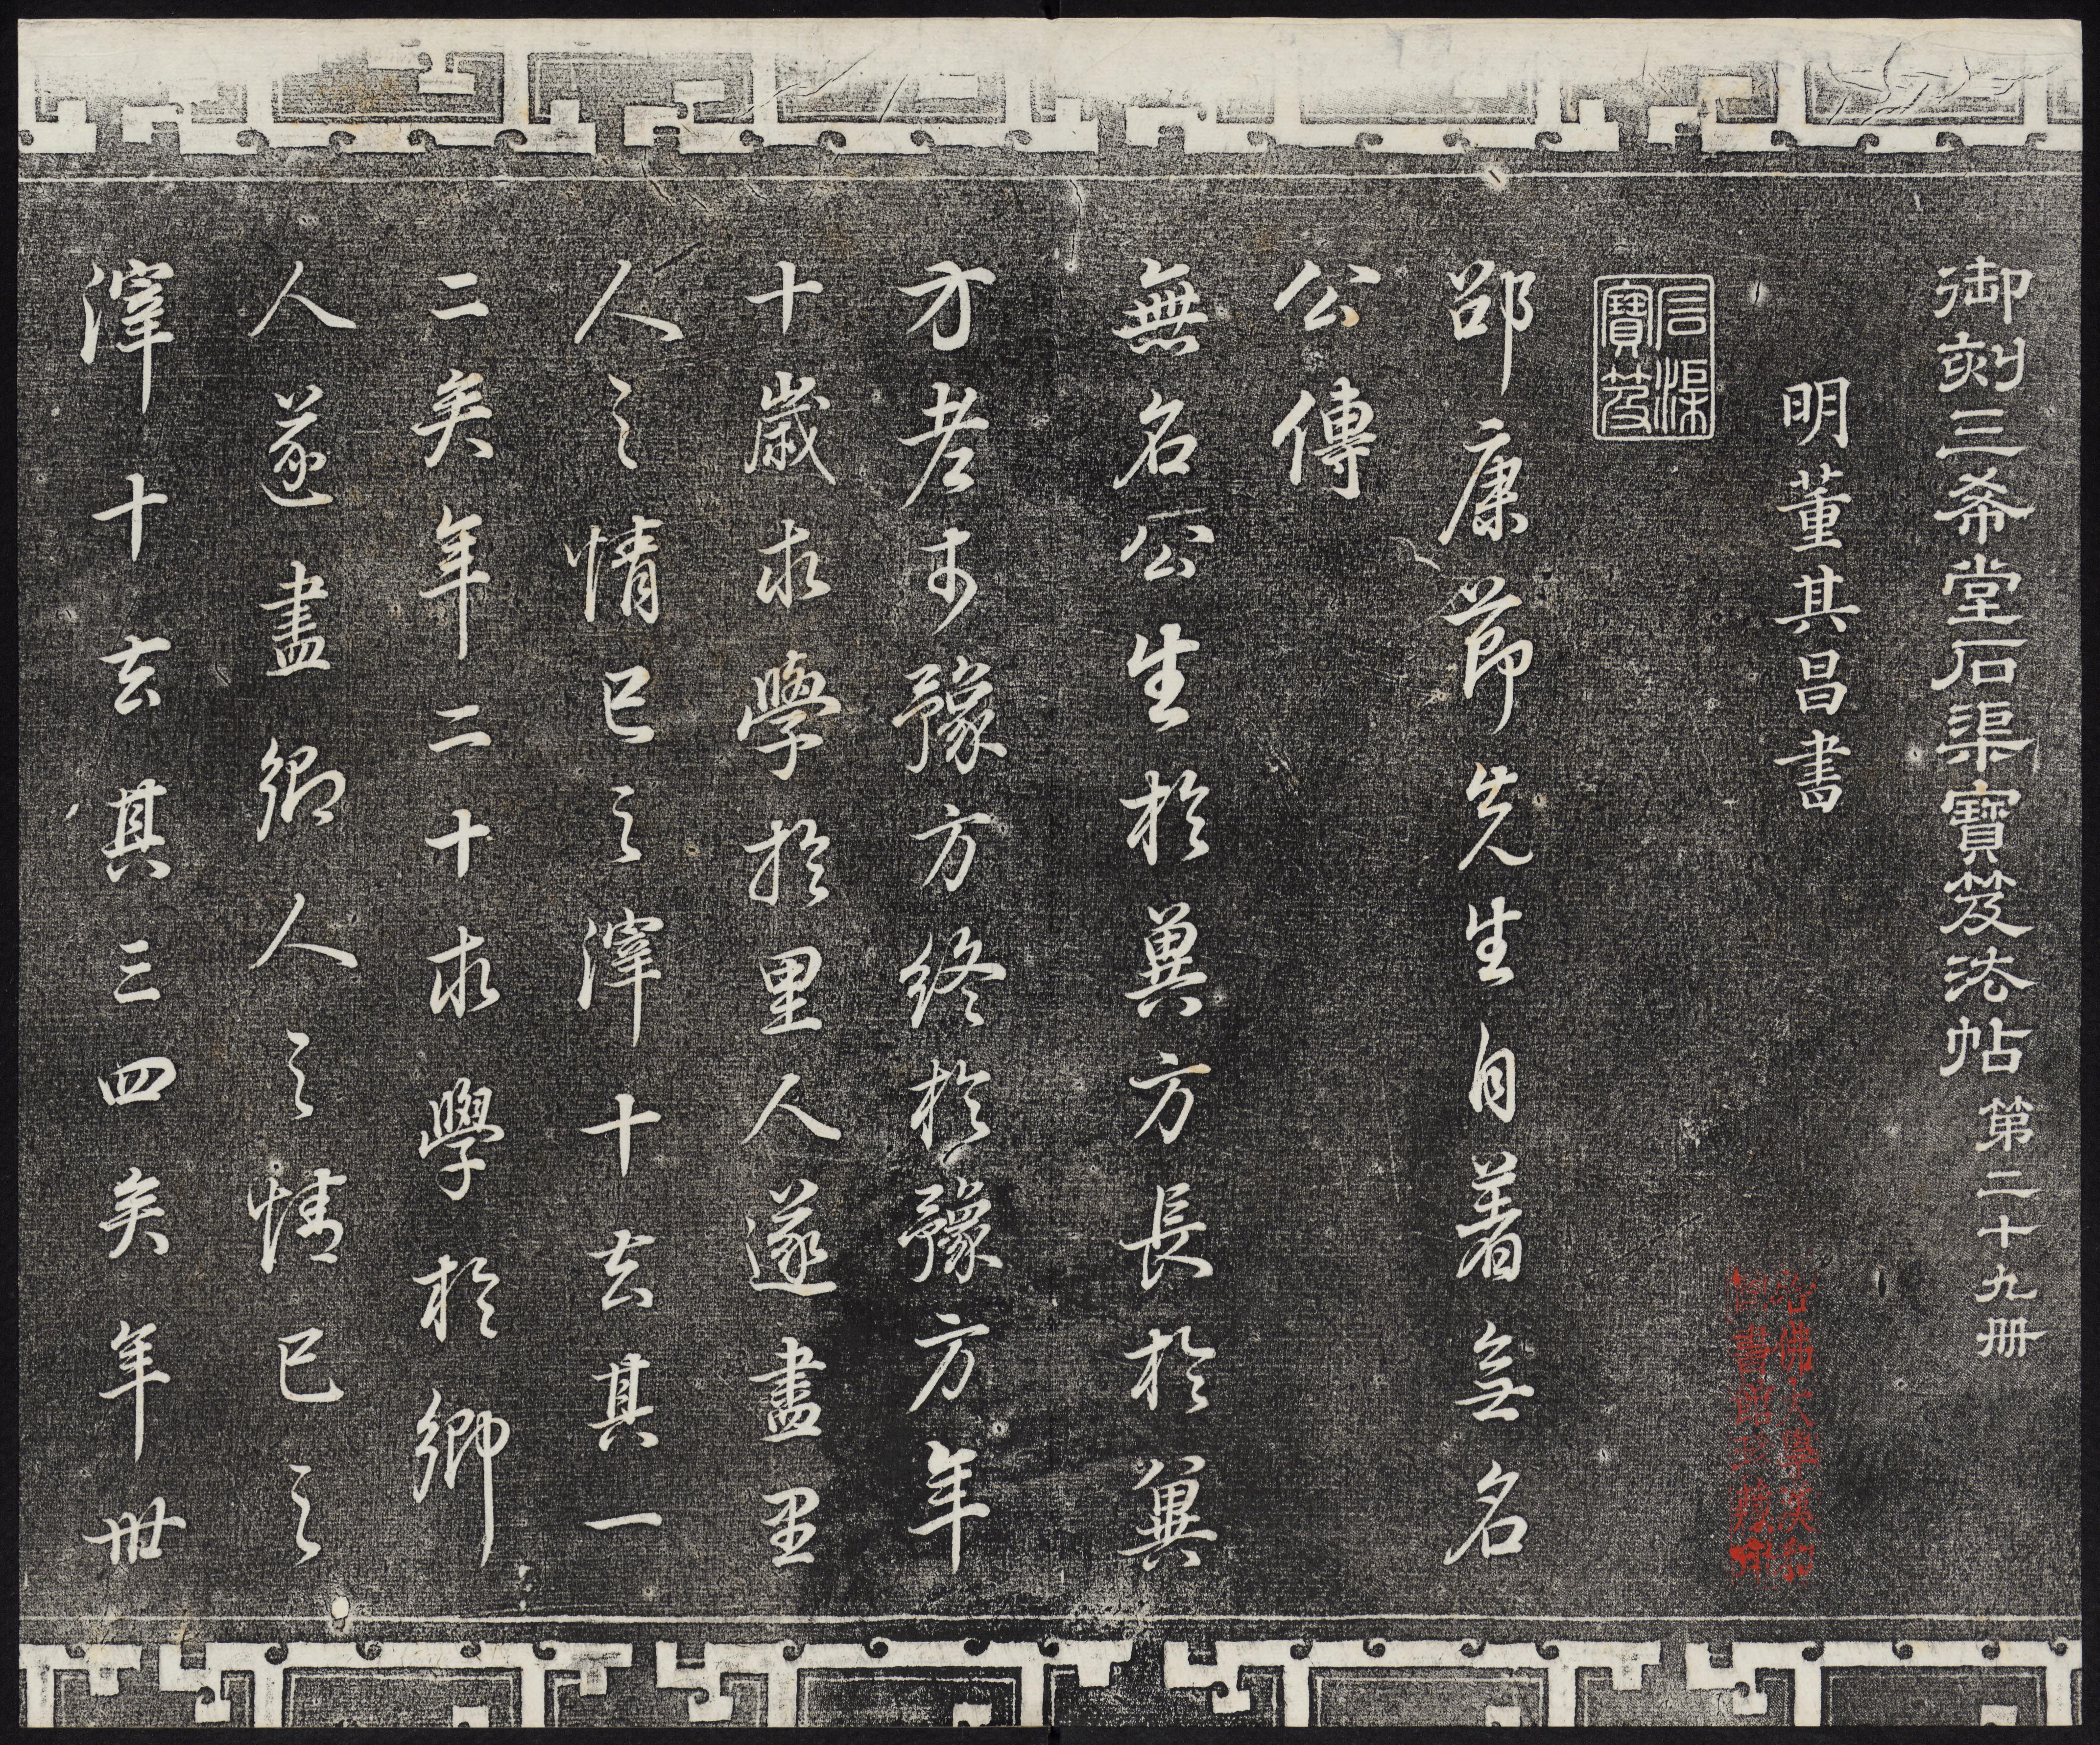 御刻三希堂石渠寶笈法帖第二十九冊
明董其昌書
石渠寶笈
哈佛大學漢和圖書館珍藏印
邵康節先生自著無名
公傳
無名公生於冀方長於冀
方老於豫方終於豫方年
十歲求學於里人遂盡里
人之情己之滓十去其一
二矣年二十求學於鄉
人遂盡鄉人之情己之
滓十去其三四矣年卅